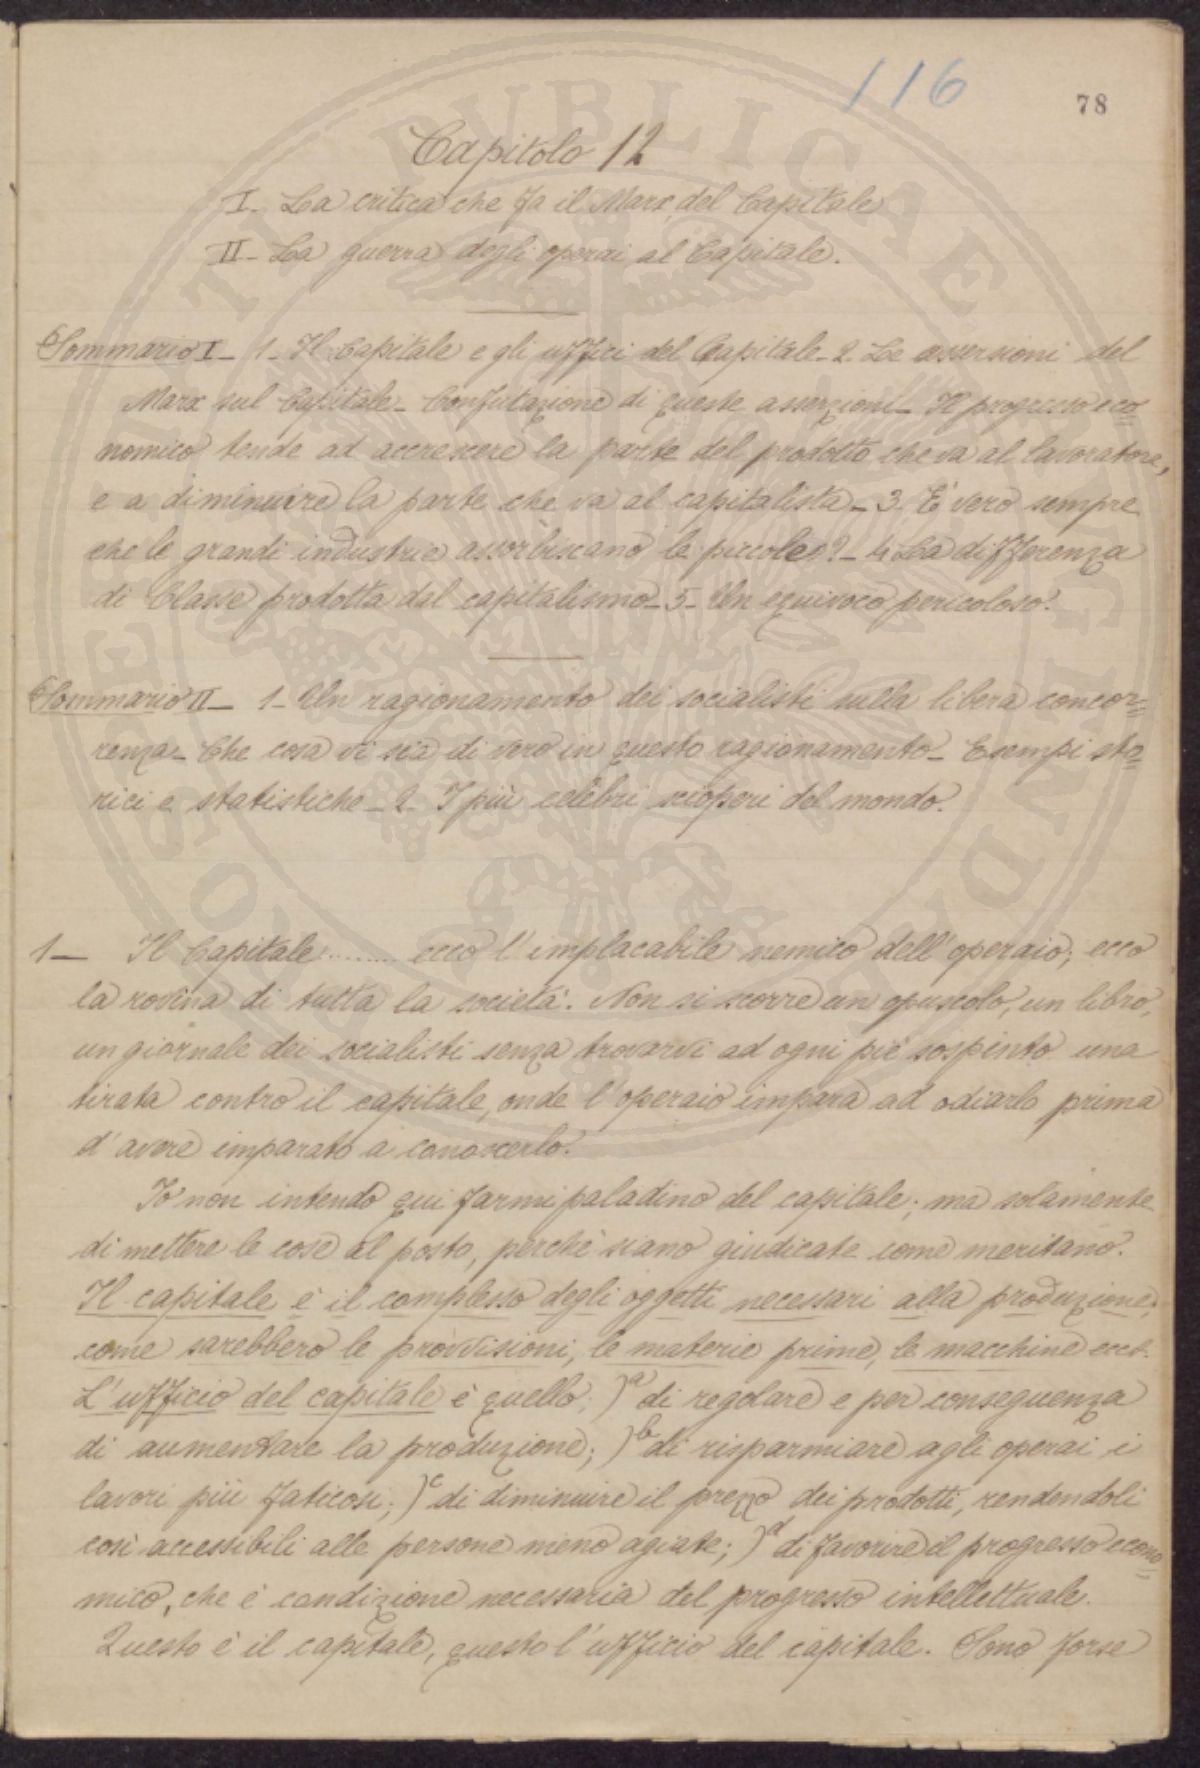 116
78
Capitolo 12
I- La critica che fa il Marx del Capitale
II- La guerra degli operai al Capitale.
Sommario I- 1- Il Capitale e gli uffici del Capitale- 2 Le asserzioni del
Marx sul Capitale- Confutazione di queste asserzioni- Il progresso eco=
nomico tende ad accrescere la parte del prodotto che va al lavoratore,
e a diminuire la parte che va al capitalista- 3 È vero sempre
che le grandi industrie assorbiscano le piccole?- 4 La differenza
di Classe prodotta dal capitalismo- 5- Un equivoco pericoloso.
Sommario II- 1- Un ragionamento dei socialisti sulla libera concor=
renza- Che cosa vi sia di vero in questo ragionamento- Esempi sto=
rici e statistiche- 2- I più celebri scioperi del mondo.
1- Il Capitale ......... ecco l'implacabile nemico dell'operaio; ecco
la rovina di tutta la società. Non si scorre un opuscolo, un libro,
un giornale dei socialisti senza trovarvi ad ogni piè sospinto una
tirata contro il capitale, onde l'operaio impara ad odiarlo prima
d'avere imparato a conoscerlo.
Io non intendo qui farmi paladino del capitale; ma solamente
di mettere le cose al posto, perché siano giudicate come meritano.
Il capitale è il complesso degli oggetti necessari alla produzione,
come sarebbero le provvisioni, le materie prime, le macchine ecc.
L'ufficio del capitale è quello; )a di regolare e per conseguenza
di aumentare la produzione; )b di risparmiare agli operai i
lavori più faticosi; )c di diminuire il prezzo dei prodotti, rendendoli
così accessibili alle persone meno agiate; )d di favorire il progresso econo=
mico, che è condizione necessaria del progresso intellettuale.
Questo è il capitale, questo l'ufficio del capitale. Sono forse
SENATVS POPVLI PVBLICAE